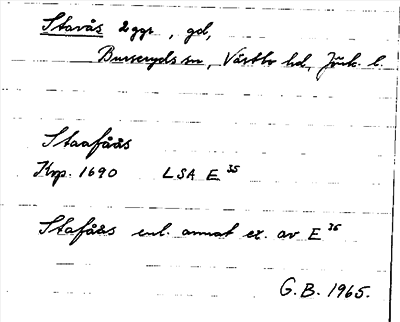 Stavås 2 ggr, gd,
Burseryds sn, Västbo hd, Jönk. l.
Staafåås
Krp. 1690 LSA E 35
Stafåås enl. annat ex. av E 36
G.B. 1965.